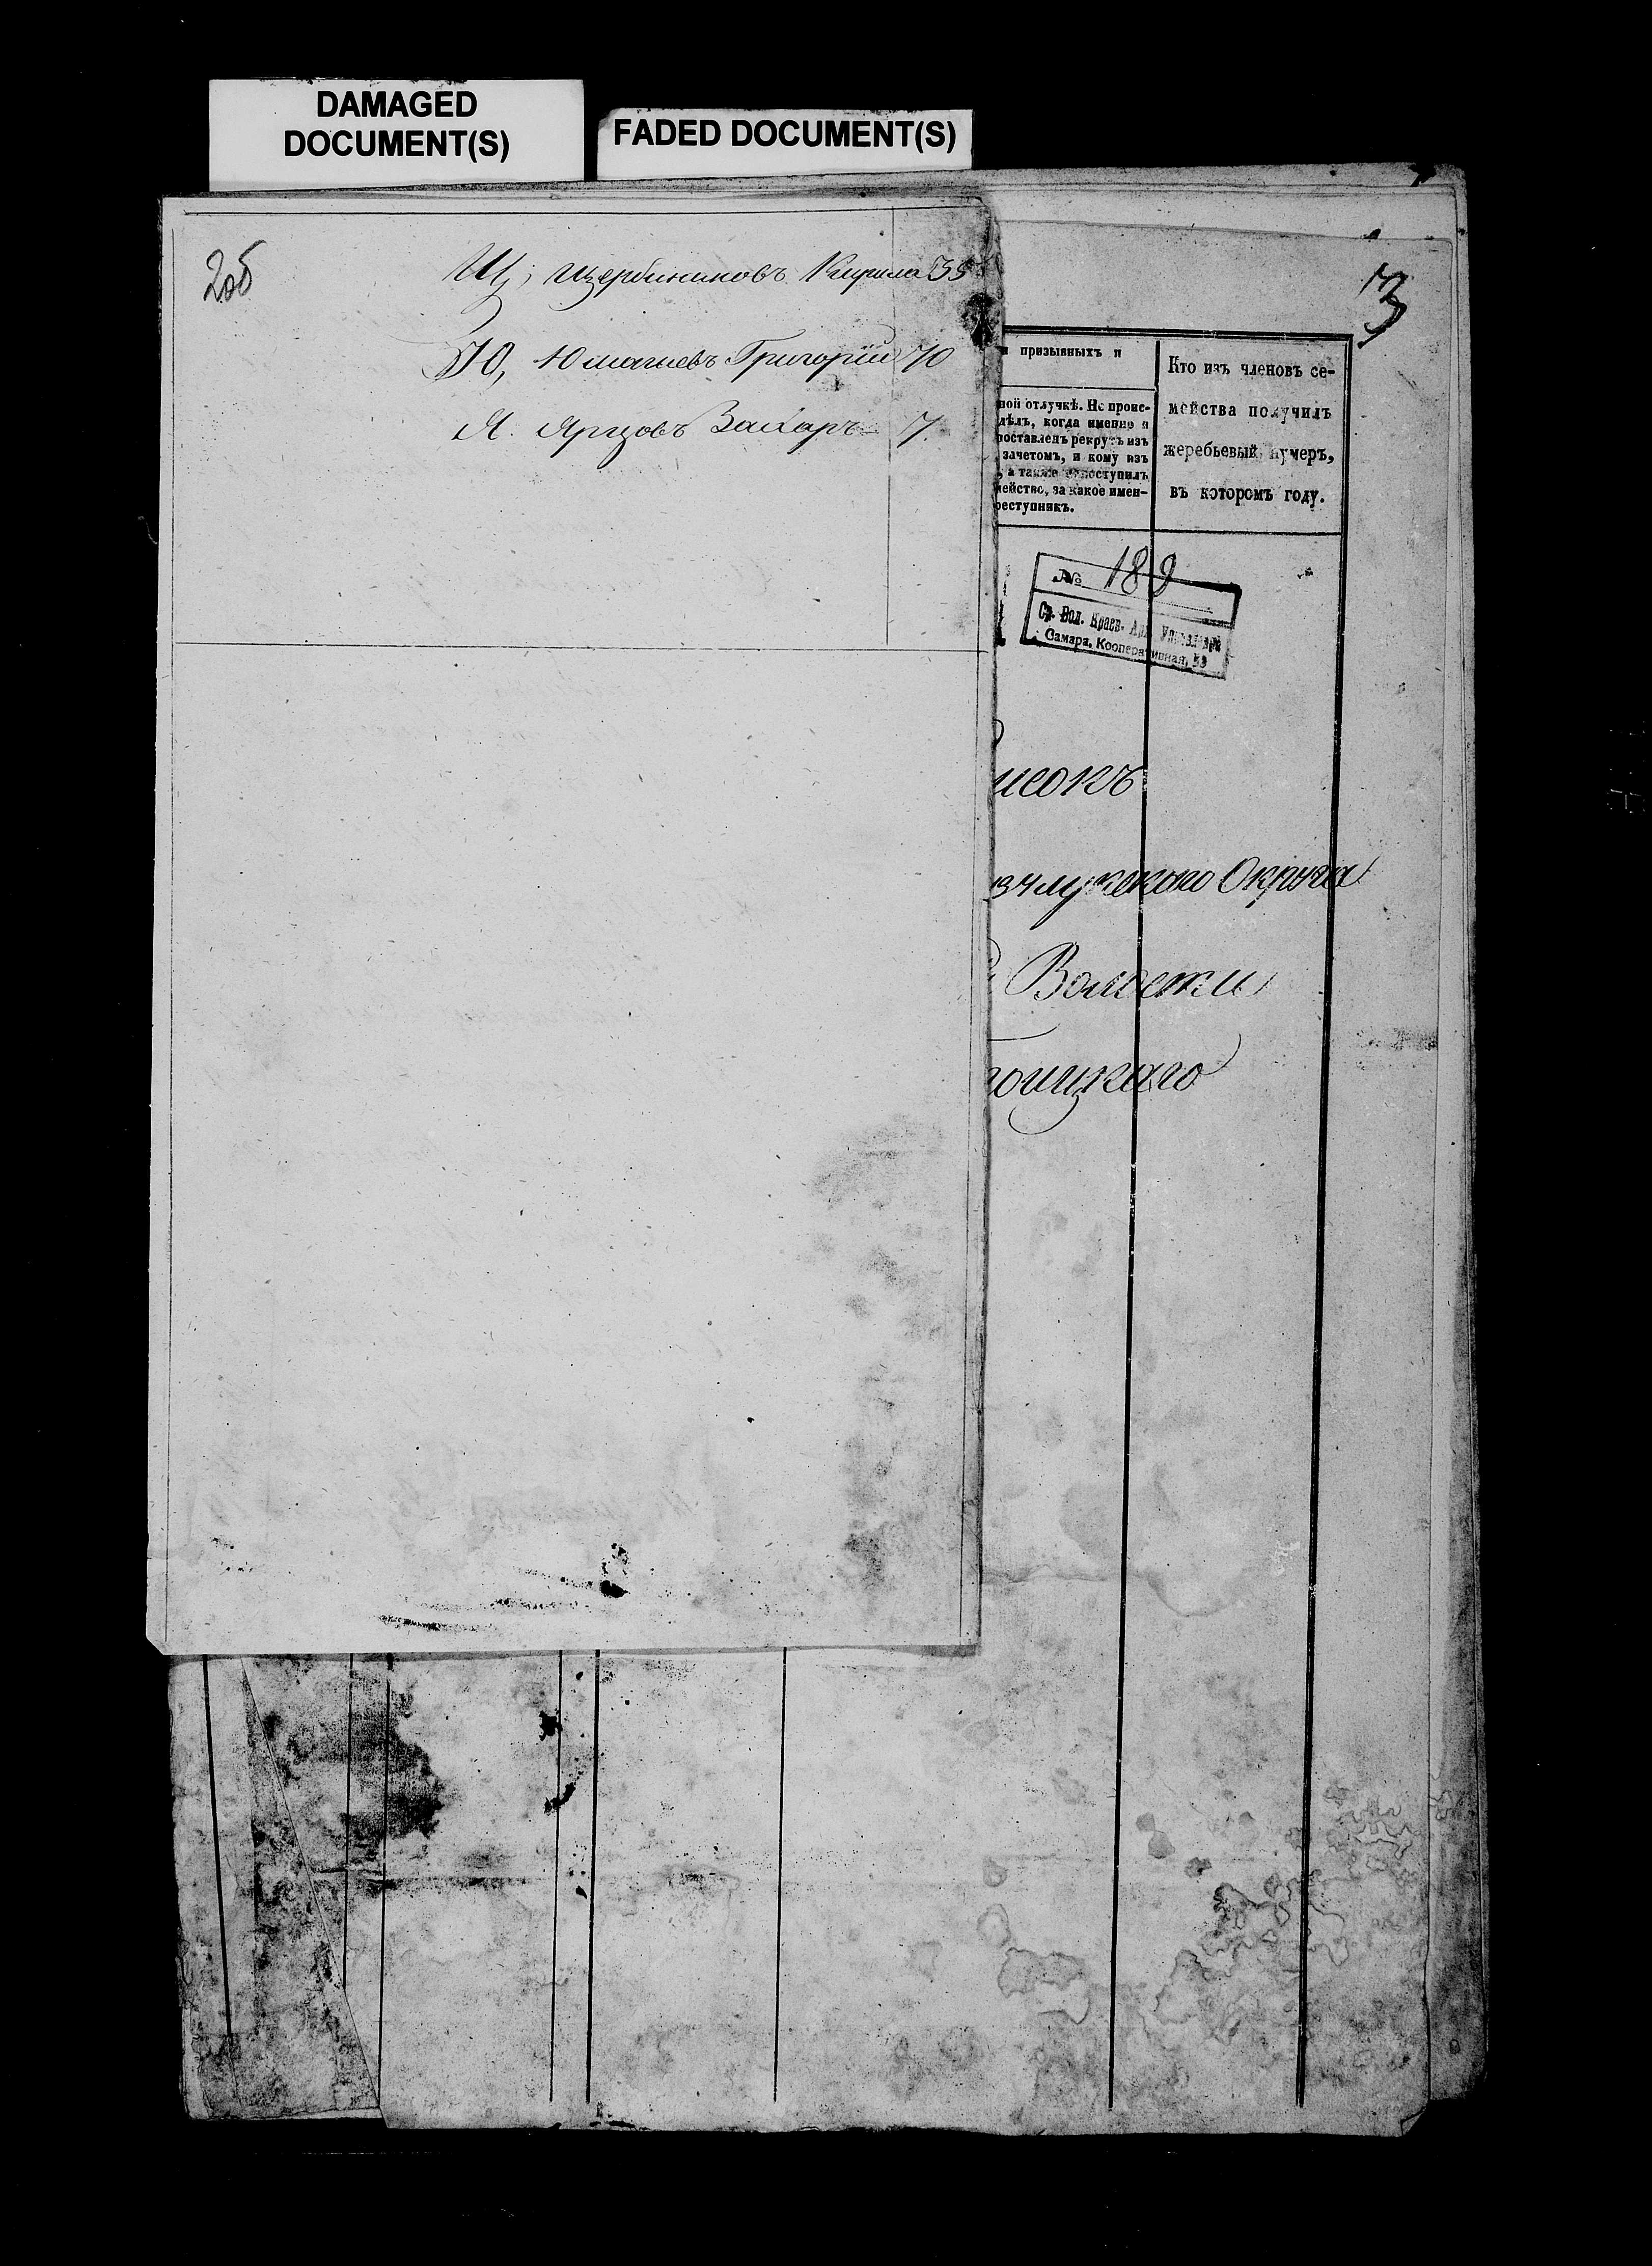 DAMAGED
DOCUMENT(S)
FADED DOCUMENT(S)
2об
Щ, Щербининовъ Кирила 35
Ю, Юмагаевъ Григорій 70
Я. Ярцовъ Захаръ 7.
3
призывныхъ и
ной отлучкѣ. Не проис-
дѣлъ, когда именно и
поставленъ рекрутъ изъ
зачетомъ, и кому изъ
, а также непоступилъ
мейство, за какое имен-
реступникъ.
Кто изъ членовъ се-
мейства получилъ
жеребьевый нумеръ,
въ которомъ году.
№ 189
Ср. Вол. Краев. Арх. Управление
Самара, Кооперативная, 59
исокъ
зулукскаго Округа
Волости
оицкаго